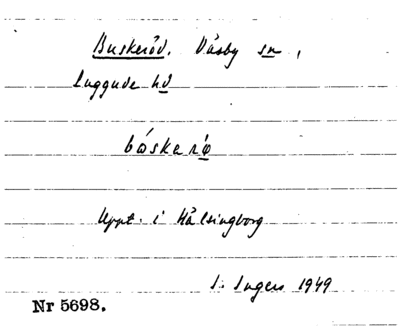 Buskeröd. Väsby sn,
Luggude hd
båskerö
Uppt. i Hälsingborg
S. Ingers 1949
Nr 5698.